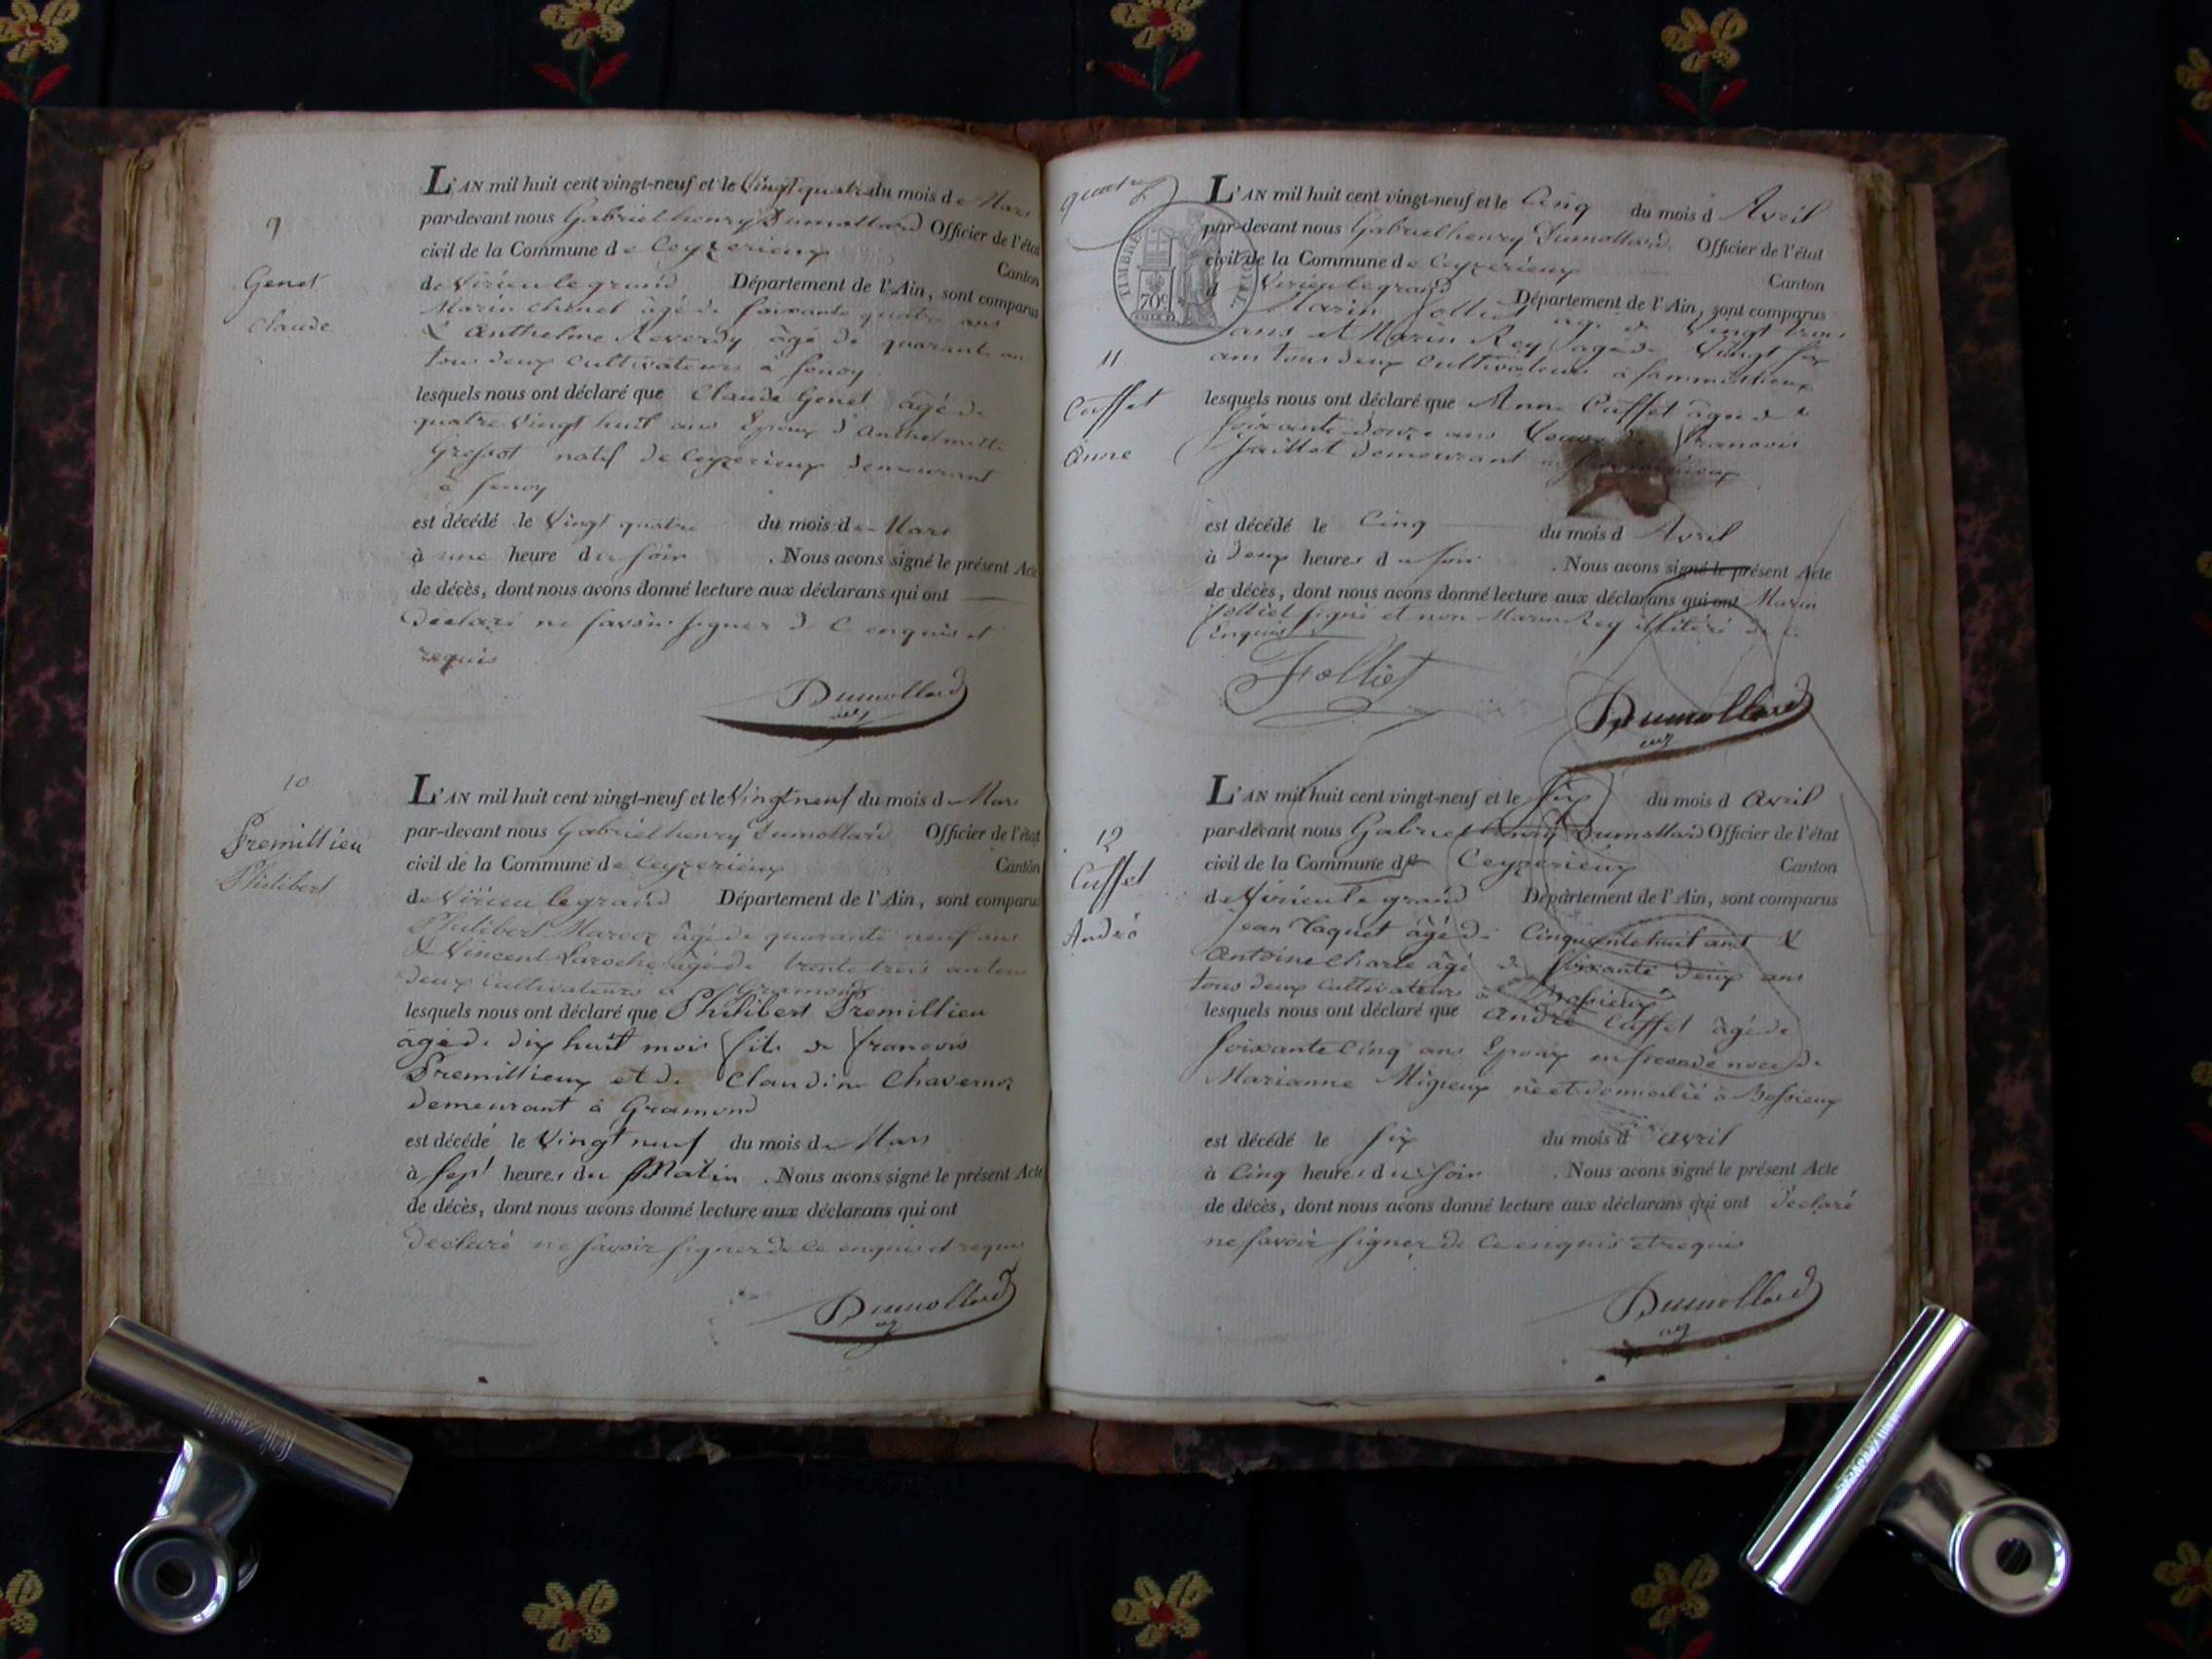 9
Genet
Claude
L'AN mil huit cent vingt-neuf et le Vingt quatre du mois de Mars
par-devant nous Gabriel henry Dumollard Officier de l'état
civil de la Commune de Ceyzerieux Canton
de Virieu le grand Département de l'Ain, sont comparus
Marin Chênet âgé de soixante quatre ans
& Anthelme Reverdy âgé de quarante an
tous deux Cultivateurs à
lesquels nous ont déclaré que Claude Genet âgé de
quatre Vingt huit ans Epoux d'Anthelmette
Grossot natif de Ceyzerieux demeurant
à
est décédé le Vingt quatre du mois de Mars
à une heure du soir . Nous avons signé le présent Acte
de décès, dont nous avons donné lecture aux déclarans qui ont
Déclaré ne savoir signer de C enquis et
requis
Dumollard
10
Premillieu
Philibert
L'AN mil huit cent vingt-neuf et le Vingt neuf du mois de Mars
par-devant nous Gabriel henry Dumollard Officier de l'état
civil de la Commune de Ceyzerieux Canton
de Virieu le grand Département de l'Ain, sont comparus
Philibert Marcoz âgé de quarante neuf ans
& Vincent Laroche âgé de trente trois an tous
deux Cultivateurs à Gramond
lesquels nous ont déclaré que Philibert Premillieu
âgé de dix huit mois fils de francois
Premillieux et de Claudine Chavernoz
demeurant à Gramond
est décédé le Vingt neuf du mois de Mars
à sept heures du Matin . Nous avons signé le présent Acte
de décès, dont nous avons donné lecture aux déclarans qui ont
Déclaré ne savoir signer de ce enquis et requis
Dumollard
quatre
TIMBRE ROYAL
70c
11
Cuffet
Anne
L'AN mil huit cent vingt-neuf et le Cinq du mois d Avril
par-devant nous Gabriel henry Dumollard Officier de l'état
civil de la Commune de Ceyzerieux Canton
d Virieu le grand Département de l'Ain, sont comparus
Marin Folliet âgé de Vingt trois
ans et Marin Rey âgé de Vingt six
ans tous deux Cultivateurs à
lesquels nous ont déclaré que Anne Cuffet âgée de
soixante-douze ans Veuve de francois
Jaillet demeurant
est décédé le Cinq du mois d Avril
à Deux heures du soir . Nous avons signé le présent Acte
de décès, dont nous avons donné lecture aux déclarans qui ont Marin
Folliet signé et non Marin Rey illitéré de C
Enquis
Folliet
Dumollard
12
Cuffet
André
L'AN mil huit cent vingt-neuf et le Six du mois d Avril
par-devant nous Gabriel henry Dumollard Officier de l'état
civil de la Commune de Ceyzerieux Canton
de Virieu le grand Département de l'Ain, sont comparus
Jean Taquet âgé de Cinquante huit ans &
Antoine Charle âgé de soixante Deux ans
tous deux Cultivateurs à Bossieux
lesquels nous ont déclaré que André Cuffet âgé de
soixante Cinq ans Epoux en seconde noce de
Marianne Migieux né et domicilié à Bossieux
est décédé le six du mois d avril
à Cinq heures du soir . Nous avons signé le présent Acte
de décès, dont nous avons donné lecture aux déclarans qui ont déclaré
ne savoir signer de ce enquis et requis
Dumollard